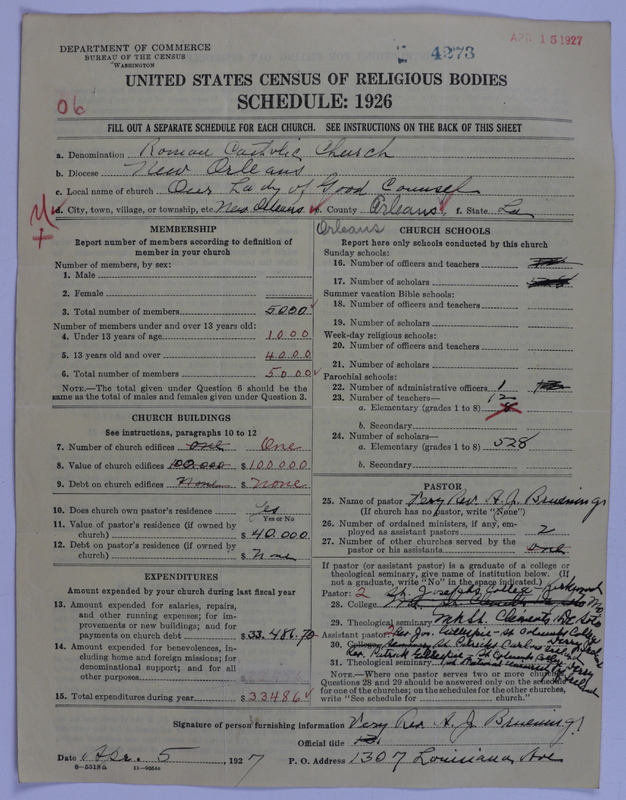 4273
APR 15 1927
DEPARTMENT OF COMMERCE
BUREAU OF THE CENSUS
WASHINGTON
UNITED STATES CENSUS OF RELIGIOUS BODIES
06
SCHEDULE: 1926
FILL OUT A SEPARATE SCHEDULE FOR EACH CHURCH. SEE INSTRUCTIONS ON THE BACK OF THIS SHEET
a. Denomination Roman Catholic Church
b. Diocese New Orleans
c. Local name of church Our Lady of Good Counsel
d. City, town, village, or township, etc. New Orleans e. County Orleans f. State La
Orleans
MEMBERSHIP
Report number of members according to definition of
member in your church
Number of members, by sex:
1. Male
2. Female
3. Total number of members 5000
Number of members under and over 13 years old:
4. Under 13 years of age 1000
5. 13 years old and over 4000
6. Total number of members 5000
NOTE.—The total given under Question 6 should be the
same as the total of males and females given under Question 3.
CHURCH BUILDINGS
See instructions, paragraphs 10 to 12
7. Number of church edifices one One
8. Value of church edifices 100.000 $ 100.000
9. Debt on church edifices None $ none
10. Does church own pastor's residence yes
Yes or No
11. Value of pastor's residence (if owned by
church) $ 40.000
12. Debt on pastor's residence (if owned by
church) $ None
EXPENDITURES
Amount expended by church during last fiscal year
13. Amount expended for salaries, repairs,
and other running expenses; for im-
provements or new buildings; and for
payments on church debt $ 33.486.70
14. Amount expended for benevolences, in-
cluding home and foreign missions; for
denominational support; and for all
other purposes
15. Total expenditures during year $ 33486
CHURCH SCHOOLS
Report here only schools conducted by this church
Sunday schools:
16. Number of officers and teachers
17. Number of scholars
Summer vacation Bible schools:
18. Number of officers and teachers
19. Number of scholars
Week-day religious schools:
20. Number of officers and teachers
21. Number of scholars
Parochial schools:
22. Number of administrative officers 1
23. Number of teachers— 12
a. Elementary (grades 1 to 8)
b. Secondary
24. Number of scholars—
a. Elementary (grades 1 to 8) 528
b. Secondary
PASTOR
25. Name of pastor Very Rev. A. J. Bruening
(If church has no pastor, write "None")
26. Number of ordained ministers, if any, em-
ployed as assistant pastors 2
27. Number of other churches served by the
pastor or his assistants one
If pastor (or assistant pastor) is a graduate of a college or
theological seminary, give name of institution below. (If
not a graduate, write "No" in the space indicated.)
Pastor: 2 St. Josephs College Kirkwood Mo
28. College
29. Theological seminary Mt. St. Clements De Soto
Assistant pastor: Rev Jos. Gillespie - St Columbs College
30. College
31. Theological seminary
NOTE.—Where one pastor serves two or more churches,
Questions 28 and 29 should be answered only on the schedule
for one of the churches; on the schedules for the other churches,
write "See schedule for church."
Signature of person furnishing information Very Rev. A. J. Bruening
Official title
Date Apr. 5, 1927 P. O. Address 1307 Louisiana Ave
8—5518a